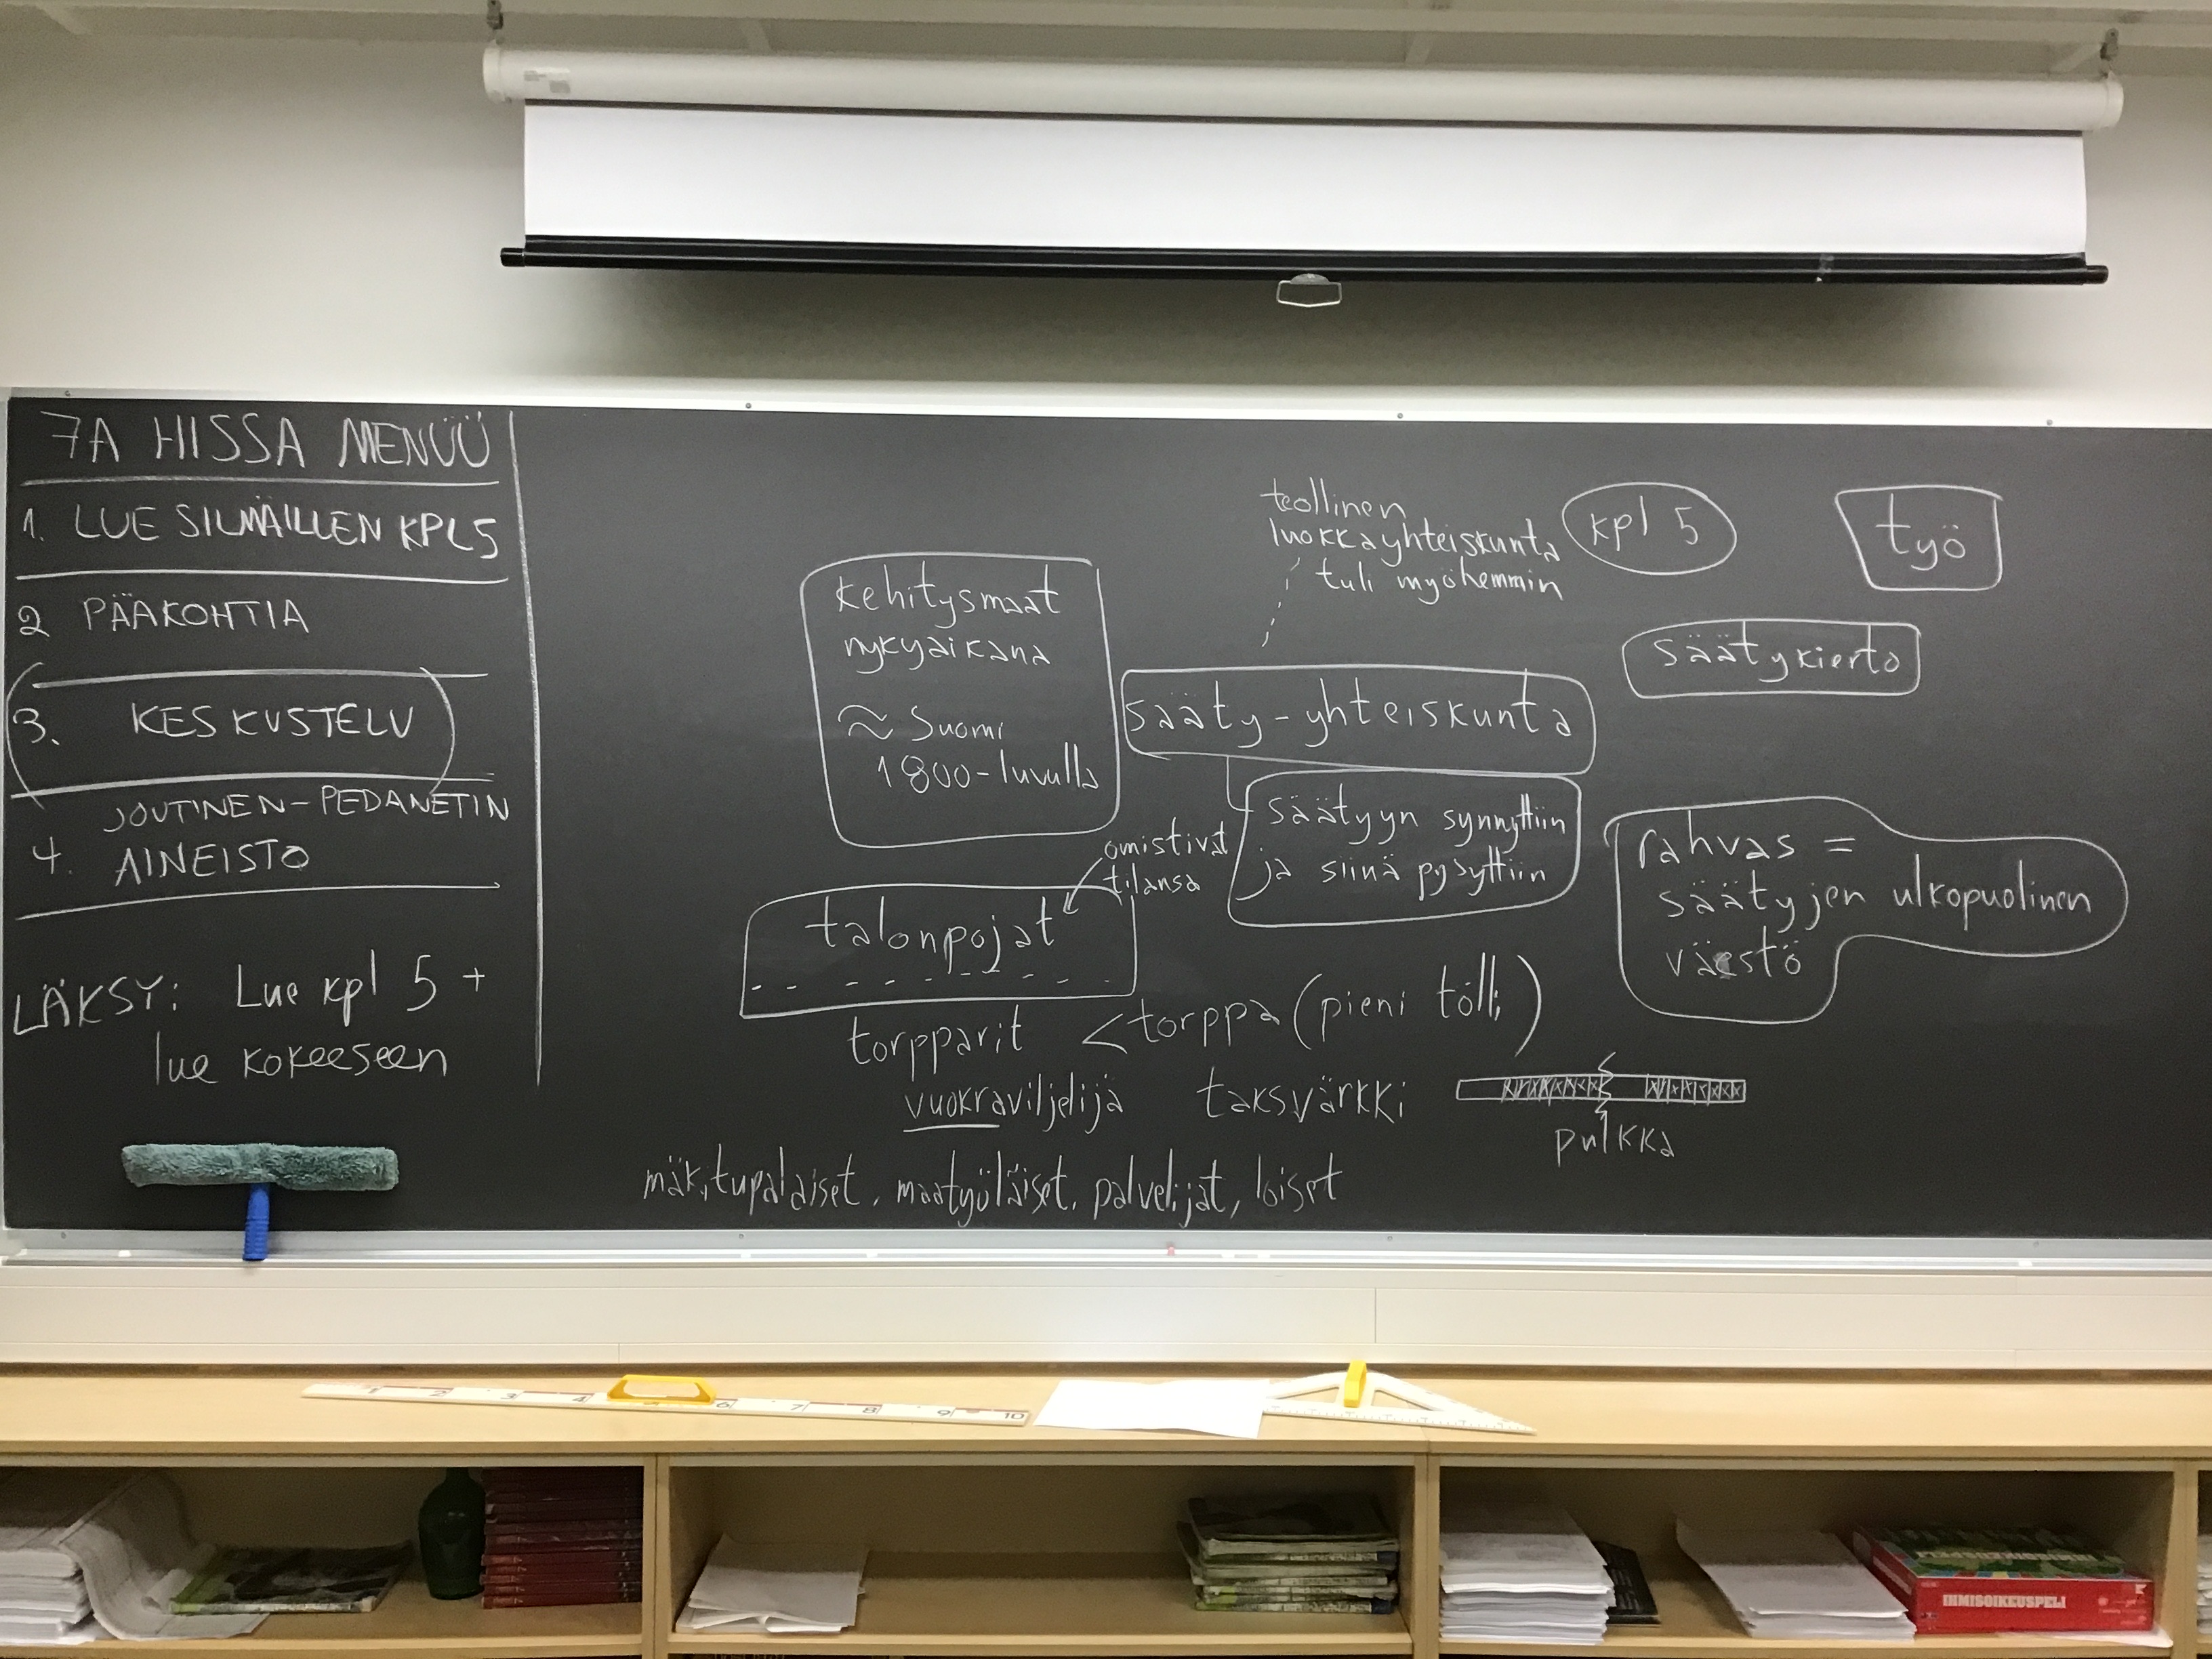 7A HISSA MENÜÜ
1. LUE SILMÄILLEN KPL 5
2 PÄÄKOHTIA
3. KESKUSTELU
JOUTINEN-PEDANETIN
4. AINEISTO
LÄKSY: Lue kpl 5 +
lue kokeeseen
kehitysmaat
nykyaikana
≈ Suomi
1800-luvulla
teollinen
luokkayhteiskunta
tuli myöhemmin
kpl 5
työ
säätykierto
sääty-yhteiskunta
säätyyn synnyttiin
ja siinä pysyttiin
omistivat
tilansa
talonpojat
rahvas =
säätyjen ulkopuolinen
väestö
torpparit < torppa (pieni tölli)
vuokraviljelijä taksvärkki
pulkka
mäkitupalaiset, maatyöläiset, palvelijat, loiset
1 2 3 4 6 7 8 9 10
IHMISOIKEUSPELI